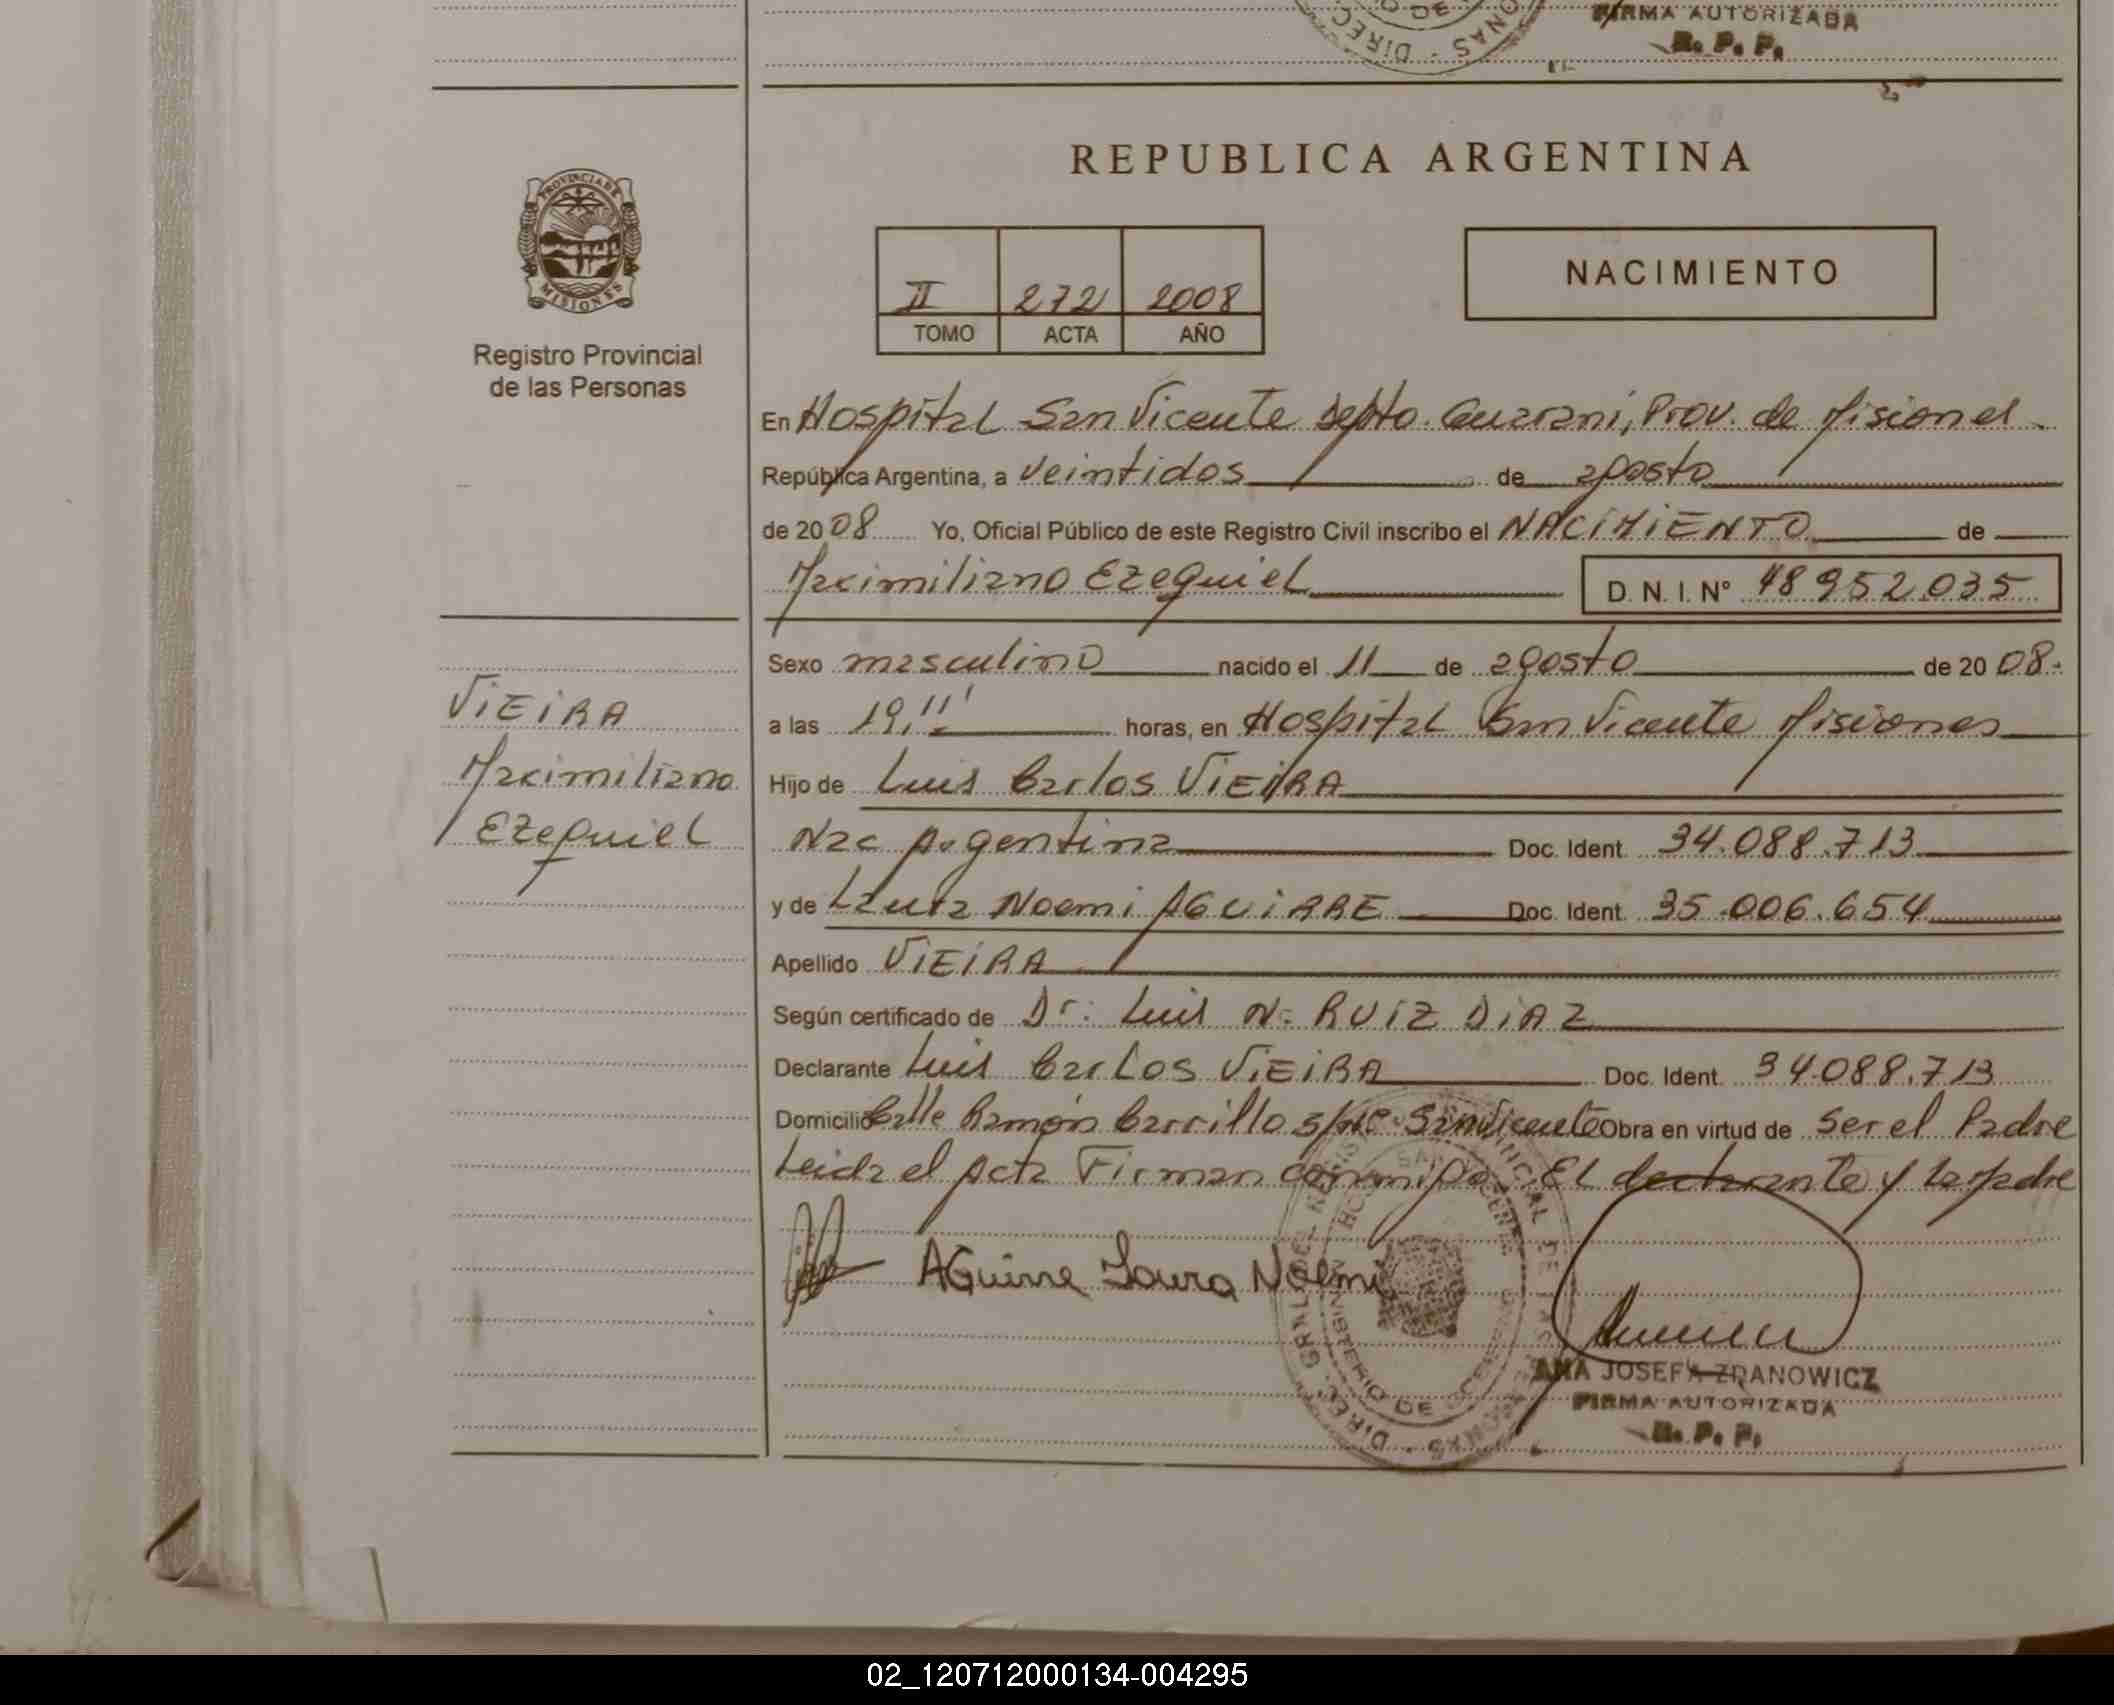 FIRMA AUTORIZADA
R. P. P.
REPUBLICA ARGENTINA
PROVINCIA DE
MISIONES
Registro Provincial
de las Personas
II 272 2008
TOMO ACTA AÑO
NACIMIENTO
En Hospital San Vicente Depto. Guarani, Prov. de Misiones
República Argentina, a veintidos de agosto
de 2008 Yo, Oficial Público de este Registro Civil inscribo el NACIMIENTO de
Maximiliano Ezequiel D. N. I. Nº 48952035
Sexo masculino nacido el 11 de agosto de 2008.
a las 19,11' horas, en Hospital San Vicente Misiones
Hijo de Luis Carlos VIEIRA
Nac Argentina Doc. Ident. 34.088.713
y de Laura Noemi AGUIRRE Doc. Ident. 35.006.654
Apellido VIEIRA
Según certificado de Dr: Luis N. RUIZ DIAZ
Declarante Luis Carlos VIEIRA Doc. Ident. 34.088.713
Domicilio Calle Ramón Carrillo s/nº San Vicente Obra en virtud de Ser el Padre
Leida el Acta Firman conmigo El declarante y la Madre
VIEIRA
Maximiliano
Ezequiel
Aguirre Laura Noemi
ANA JOSEFA ZDANOWICZ
FIRMA AUTORIZADA
R. P. P.
02_120712000134-004295